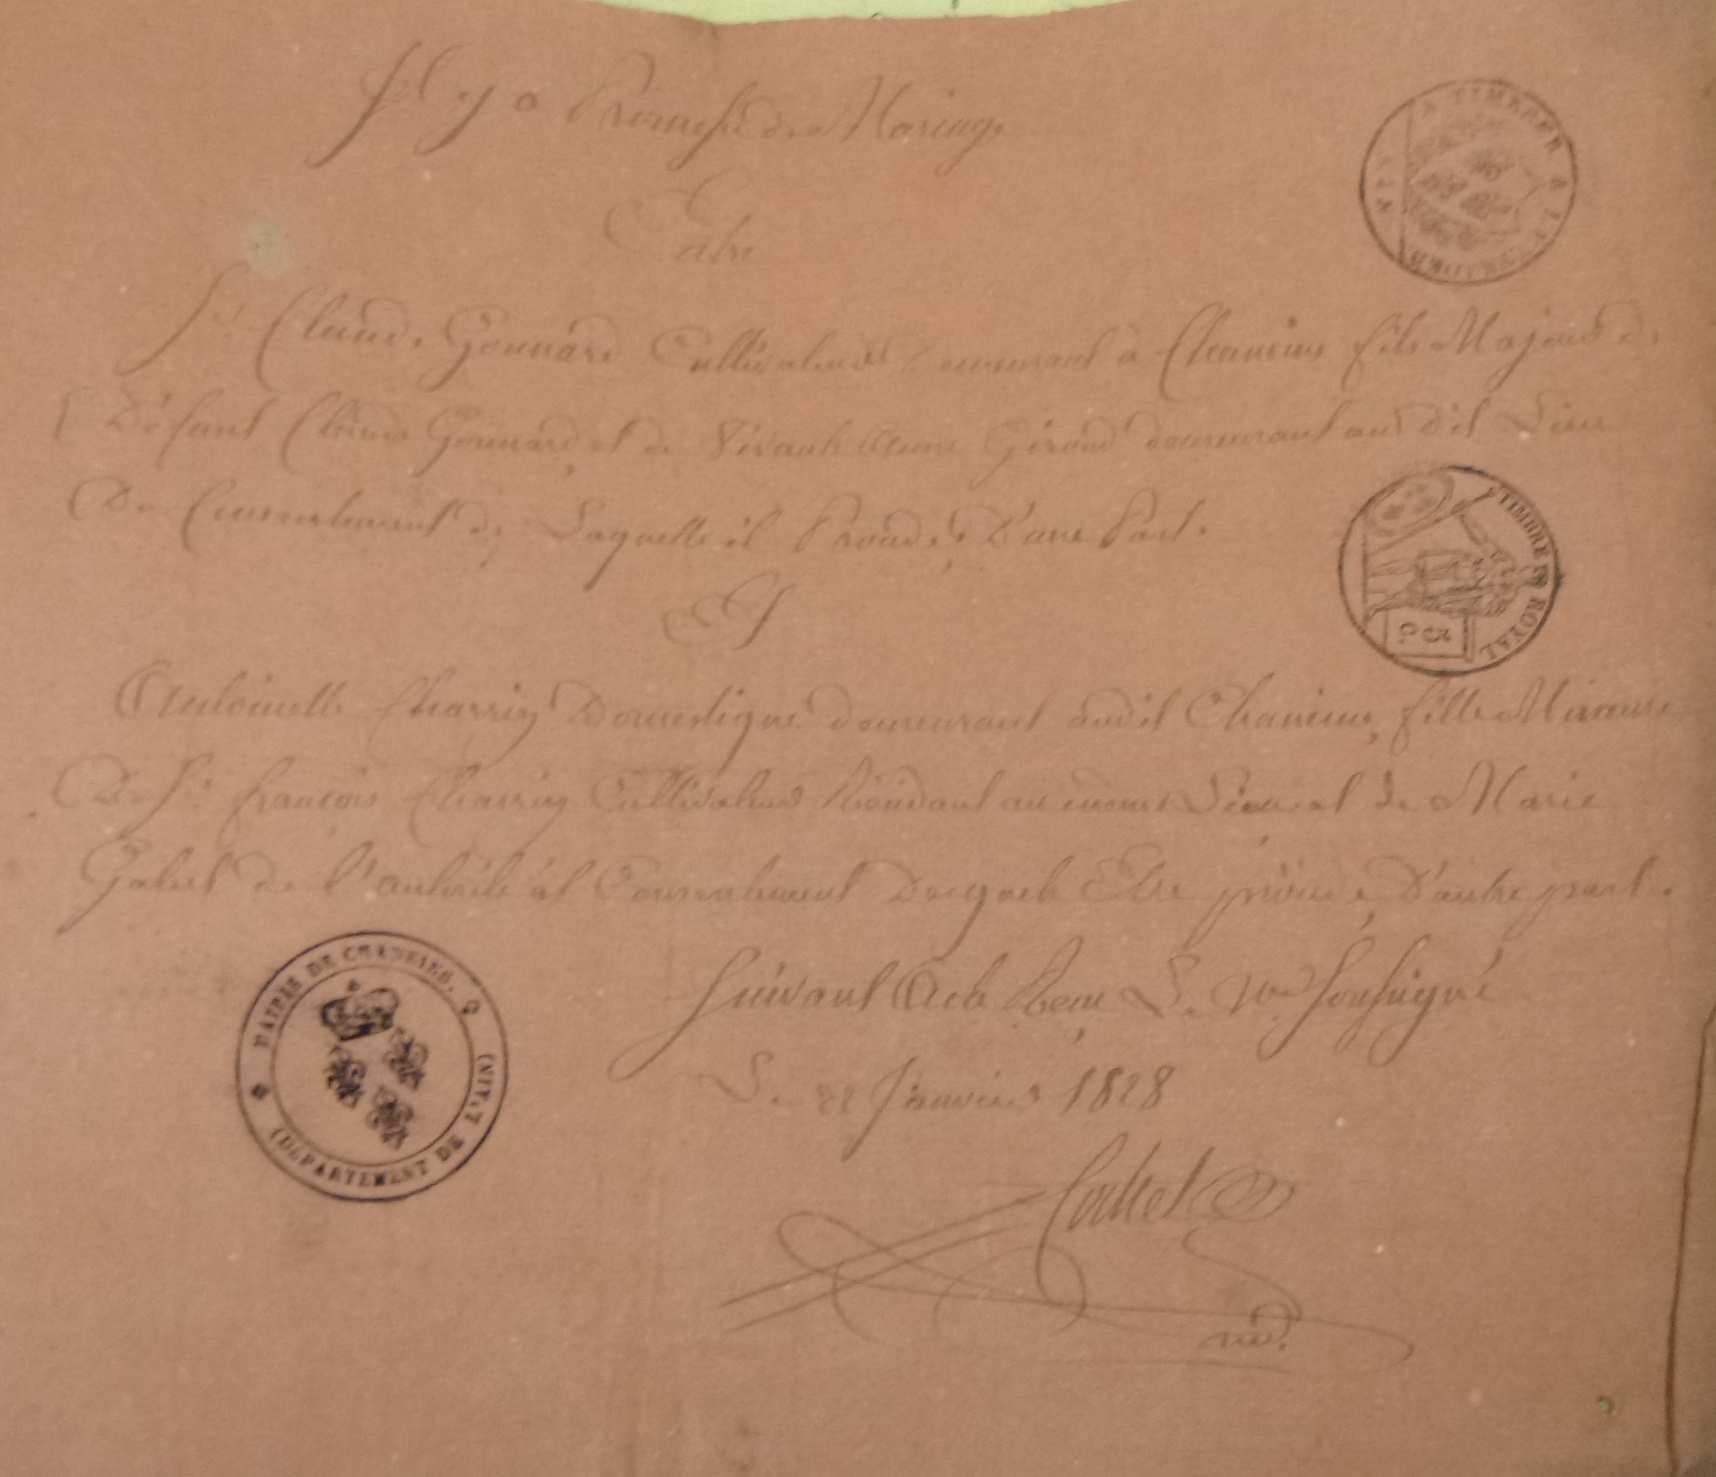 Il y a Promesse de Mariage
Entre
Sr. Claude Gonnard Cultivateur demeurant à Chaneins fils Majeur de
Défunt Claude Gonnard et de Vivante Anne Giroud demeurant au dit Lieu
Du Consentement de Laquelle il Procède, D'une Part.
Et
Antoinette Charrin Domestique demeurant audit Chaneins, fille Mineure
De Sr. françois Charrin Cultivateur Résidant au même Lieu et de Marie
de l'autorité et Consentement Desquels Elle procède, D'autre part.
Suivant Acte Reçu Le Nre Soussigné
Le 22 Janvier 1828
nre.
A TIMBRER A L'EXTRAORD.
AIN
TIMBRE ROYAL
MAIRIE DE CHANEINS.
(DÉPARTEMENT DE L'AIN)